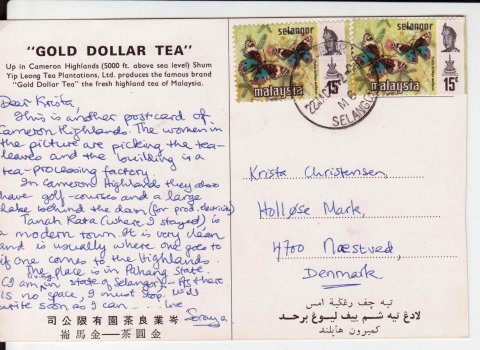 "GOLD DOLLAR TEA"
Up in Cameron Highlands (5000 ft. above sea level) Shum
Yip Leong Tea Plantations, Ltd. produces the famous brand
"Gold Dollar Tea" the fresh highland tea of Malaysia.
Dear Krista,
This is another postcard of
Cameron Highlands. The women in
the picture are picking the tea-
leaves and the building is a
tea-processing factory.
In Cameron Highlands they also
have golf-courses and a large
lake behind the dam (for prod. electricity)
Tanah Rata (where I stayed) is
a modern town. It is very clean
and is usually where one goes to
if one comes to the Highlands.
The place is in Pahang State.
(I am in state of Selangor) - As there
is no space, I must stop. Will
write soon as I can... love
Soraya
司公限有園茶良業岑
崙馬金—茶圓金
selangor
malaysia
15¢
selangor
malaysia
15¢
SELANGOR
Krista Christensen
Holløse Mark,
4700 Næstved,
Denmark
تيه چف رڠݢية امس
لادڠ تيه شم ييف ليوڠ برحد
كميرون هايلند